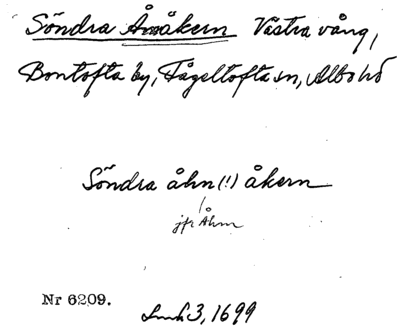 Söndra Åmåkern Västra vång,
Bontofta by, Fågeltofta sn, Albo hd
Söndra åhn (!) åkern
jfr Åhm
Nr 6209.
Lmh 3, 1699